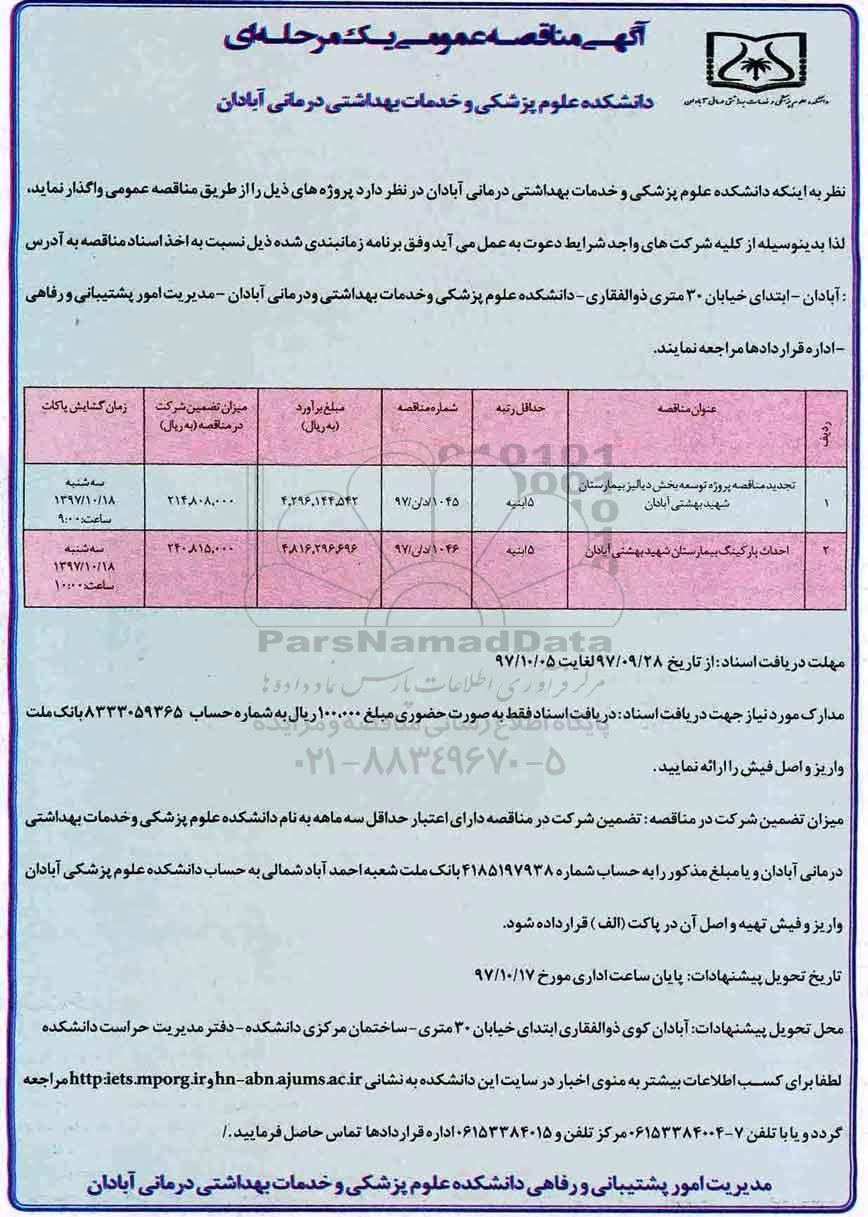 آگهی مناقصه عمومی یک مرحله‌ای
دانشکده علوم پزشکی و خدمات بهداشتی درمانی آبادان
نظر به اینکه دانشکده علوم پزشکی و خدمات بهداشتی درمانی آبادان در نظر دارد پروژه های ذیل را از طریق مناقصه عمومی واگذار نماید،
لذا بدینوسیله از کلیه شرکت های واجد شرایط دعوت به عمل می آید وفق برنامه زمانبندی شده ذیل نسبت به اخذ اسناد مناقصه به آدرس
: آبادان – ابتدای خیابان ۳۰ متری ذوالفقاری – دانشکده علوم پزشکی وخدمات بهداشتی ودرمانی آبادان – مدیریت امور پشتیبانی و رفاهی
– اداره قراردادها مراجعه نمایند.
ردیف عنوان مناقصه حداقل رتبه شماره مناقصه مبلغ برآورد (به ریال) میزان تضمین شرکت در مناقصه (به ریال) زمان گشایش پاکات
۱ تجدید مناقصه پروژه توسعه بخش دیالیز بیمارستان شهید بهشتی آبادان ۵ ابنیه ۱۰۴۵/د/ن/۹۷ ۴,۲۹۶,۱۴۴,۵۴۲ ۲۱۴,۸۰۸,۰۰۰ سه شنبه ۱۳۹۷/۱۰/۱۸ ساعت: ۹:۰۰
۲ احداث پارکینگ بیمارستان شهید بهشتی آبادان ۵ ابنیه ۱۰۴۶/د/ن/۹۷ ۴,۸۱۶,۲۹۶,۶۹۶ ۲۴۰,۸۱۵,۰۰۰ سه شنبه ۱۳۹۷/۱۰/۱۸ ساعت: ۱۰:۰۰
ParsNamadData
مرکز فرآوری اطلاعات پارس نماد داده ها
مهلت دریافت اسناد : از تاریخ ۹۷/۰۹/۲۸ لغایت ۹۷/۱۰/۰۵
مدارک مورد نیاز جهت دریافت اسناد : دریافت اسناد فقط به صورت حضوری مبلغ ۱۰۰,۰۰۰ ریال به شماره حساب ۸۳۳۳۰۵۹۳۶۵ بانک ملت
پایگاه اطلاع رسانی مناقصه و مزایده
واریز و اصل فیش را ارائه نمایید .
۰۲۱-۸۸۳۴۹۶۷۰-۵
میزان تضمین شرکت در مناقصه : تضمین شرکت در مناقصه دارای اعتبار حداقل سه ماهه به نام دانشکده علوم پزشکی وخدمات بهداشتی
درمانی آبادان و یا مبلغ مذکور را به حساب شماره ۴۱۸۵۱۹۷۹۳۸ بانک ملت شعبه احمد آباد شمالی به حساب دانشکده علوم پزشکی آبادان
واریز و فیش تهیه و اصل آن در پاکت (الف ) قرار داده شود.
تاریخ تحویل پیشنهادات: پایان ساعت اداری مورخ ۹۷/۱۰/۱۷
محل تحویل پیشنهادات: آبادان کوی ذوالفقاری ابتدای خیابان ۳۰ متری – ساختمان مرکزی دانشکده – دفتر مدیریت حراست دانشکده
لطفا برای کسب اطلاعات بیشتر به منوی اخبار در سایت این دانشکده به نشانی hn-abn.ajums.ac.ir و http:iets.mporg.ir مراجعه
گردد و یا با تلفن ۷-۰۶۱۵۳۳۸۴۰۰۴ مرکز تلفن و ۰۶۱۵۳۳۸۴۰۱۵ اداره قراردادها تماس حاصل فرمایید ./
مدیریت امور پشتیبانی و رفاهی دانشکده علوم پزشکی و خدمات بهداشتی درمانی آبادان